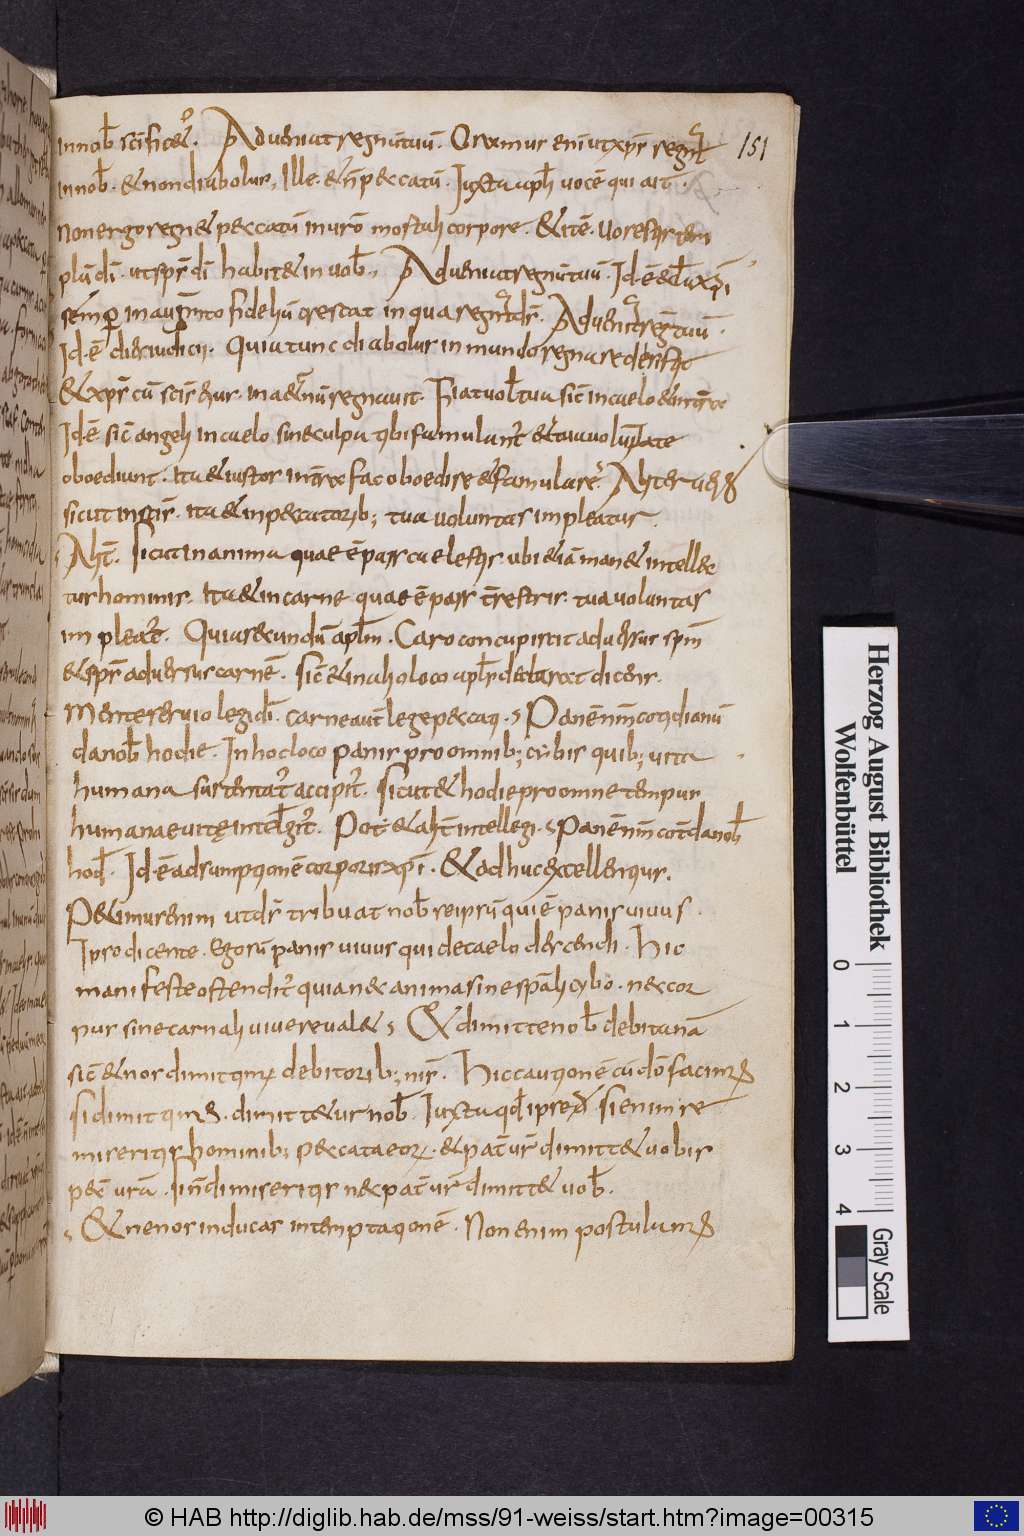 in nob̄ sc̄ificeꞇ᷑. Adueniat regnū tuū. Oramus enī ut xp̄s regnet
151
in nob̄. & non diabolus, Ille. & n̄ peccatū. Juxta apłi uocē qui ait.
Non ergo regn& peccatū in ur̄o mortali corpore. & itē. uos estis tem
plū dī. ut sp̄s dī habit& in uob̄. Adueniat regnū tuū. Id ē
semp̄ in augmento fideliū crescat in qua regnat ds̄. Adueniat regnū tuū.
Id ē dies iudicii. Quia tunc diabolus in mundo regnare desistit
& xp̄s cū sc̄is eius. in a&ernū regnauit. Fiat uol̄ tua sic̄ in caelo & in terra
Id ē sic̄ angeli in caelo sine culpa tibi famulant᷑ & tuae uoluntate
oboediunt. Ita & iustos in terra fac oboedire & famulare. Aliter
sicut in iustis. ita & in peccatorib; tua uoluntas impleatur.
Alit̄. Sicut in anima quae ē pars caelestis ubi &iā man& intellec
tus hominis. Ita & in carne quae ē pars t̄restris. tua uoluntas
impleat᷑. Quia secundū apłm. Caro concupiscit aduersus spm̄
& sp̄s aduersus carnē. Sic̄ & in alio loco apłs declarat dicens.
Mente seruio legi dī. carne aut̄ lege peccati. Panē nr̄m cotidianū
da nob̄ hodie. In hoc loco panis pro omnib; cybis quib; uita
humana sustentat᷑ accipit᷑. sicut & hodie pro omne tempus
humanae uitę intelligit᷑. Pot̄ & alit̄ intellegi. Panē nr̄m cot̄ da nob̄
hod̄. Id ē adsumptionē corporis xp̄i. & adhuc excellentius.
Petimus enim ut ds̄ tribuat nob̄ se ipsū qui ē panis uiuus.
Ipso dicente. Ego sū panis uiuus qui de caelo descendi. Hic
manifeste ostendit᷑ quia nec anima sine sp̄ali cybo. nec cor
pus sine carnali uiuere ual&. & dimitte nob̄ debita nr̄a
sic̄ & nos dimittimus debitorib; nr̄is. Hic cautionē cū dō facimus
si dimittimus. dimitt&ur nob̄. Juxta qd̄ ipse. Si enim re
miseritis hominib; peccata eorum. & pat̄ ur̄ dimitt& uobis
pec̄ ur̄a. Si n̄ dimiseritis nec pat̄ ur̄ dimitt& uob̄.
& ne nos inducas in temptationē. Non enim postulamus
Herzog August Bibliothek
Wolfenbüttel
0 1 2 3 4
Gray Scale
© HAB http://diglib.hab.de/mss/91-weiss/start.htm?image=00315